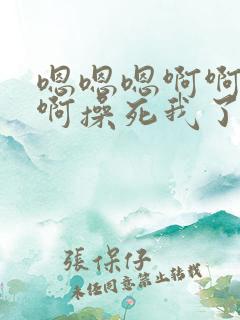 嗯嗯嗯啊啊
啊操死我了
張保仔
未经同意禁止转载